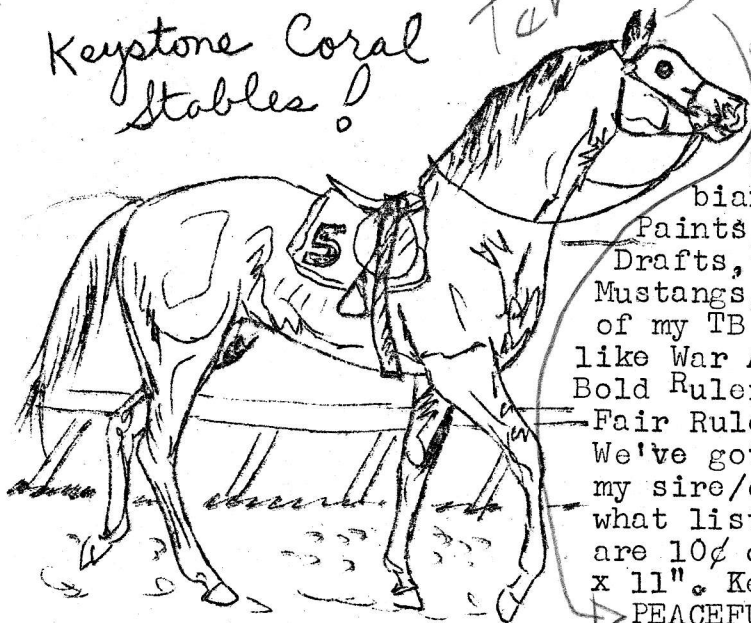 Keystone Coral
Stables!
5
Paints
Drafts,
Mustangs
of my TB
like War
Bold Ruler
Fair Rule
We've go
my sire/
what list
are 10¢
x 11". K
PEACEFU